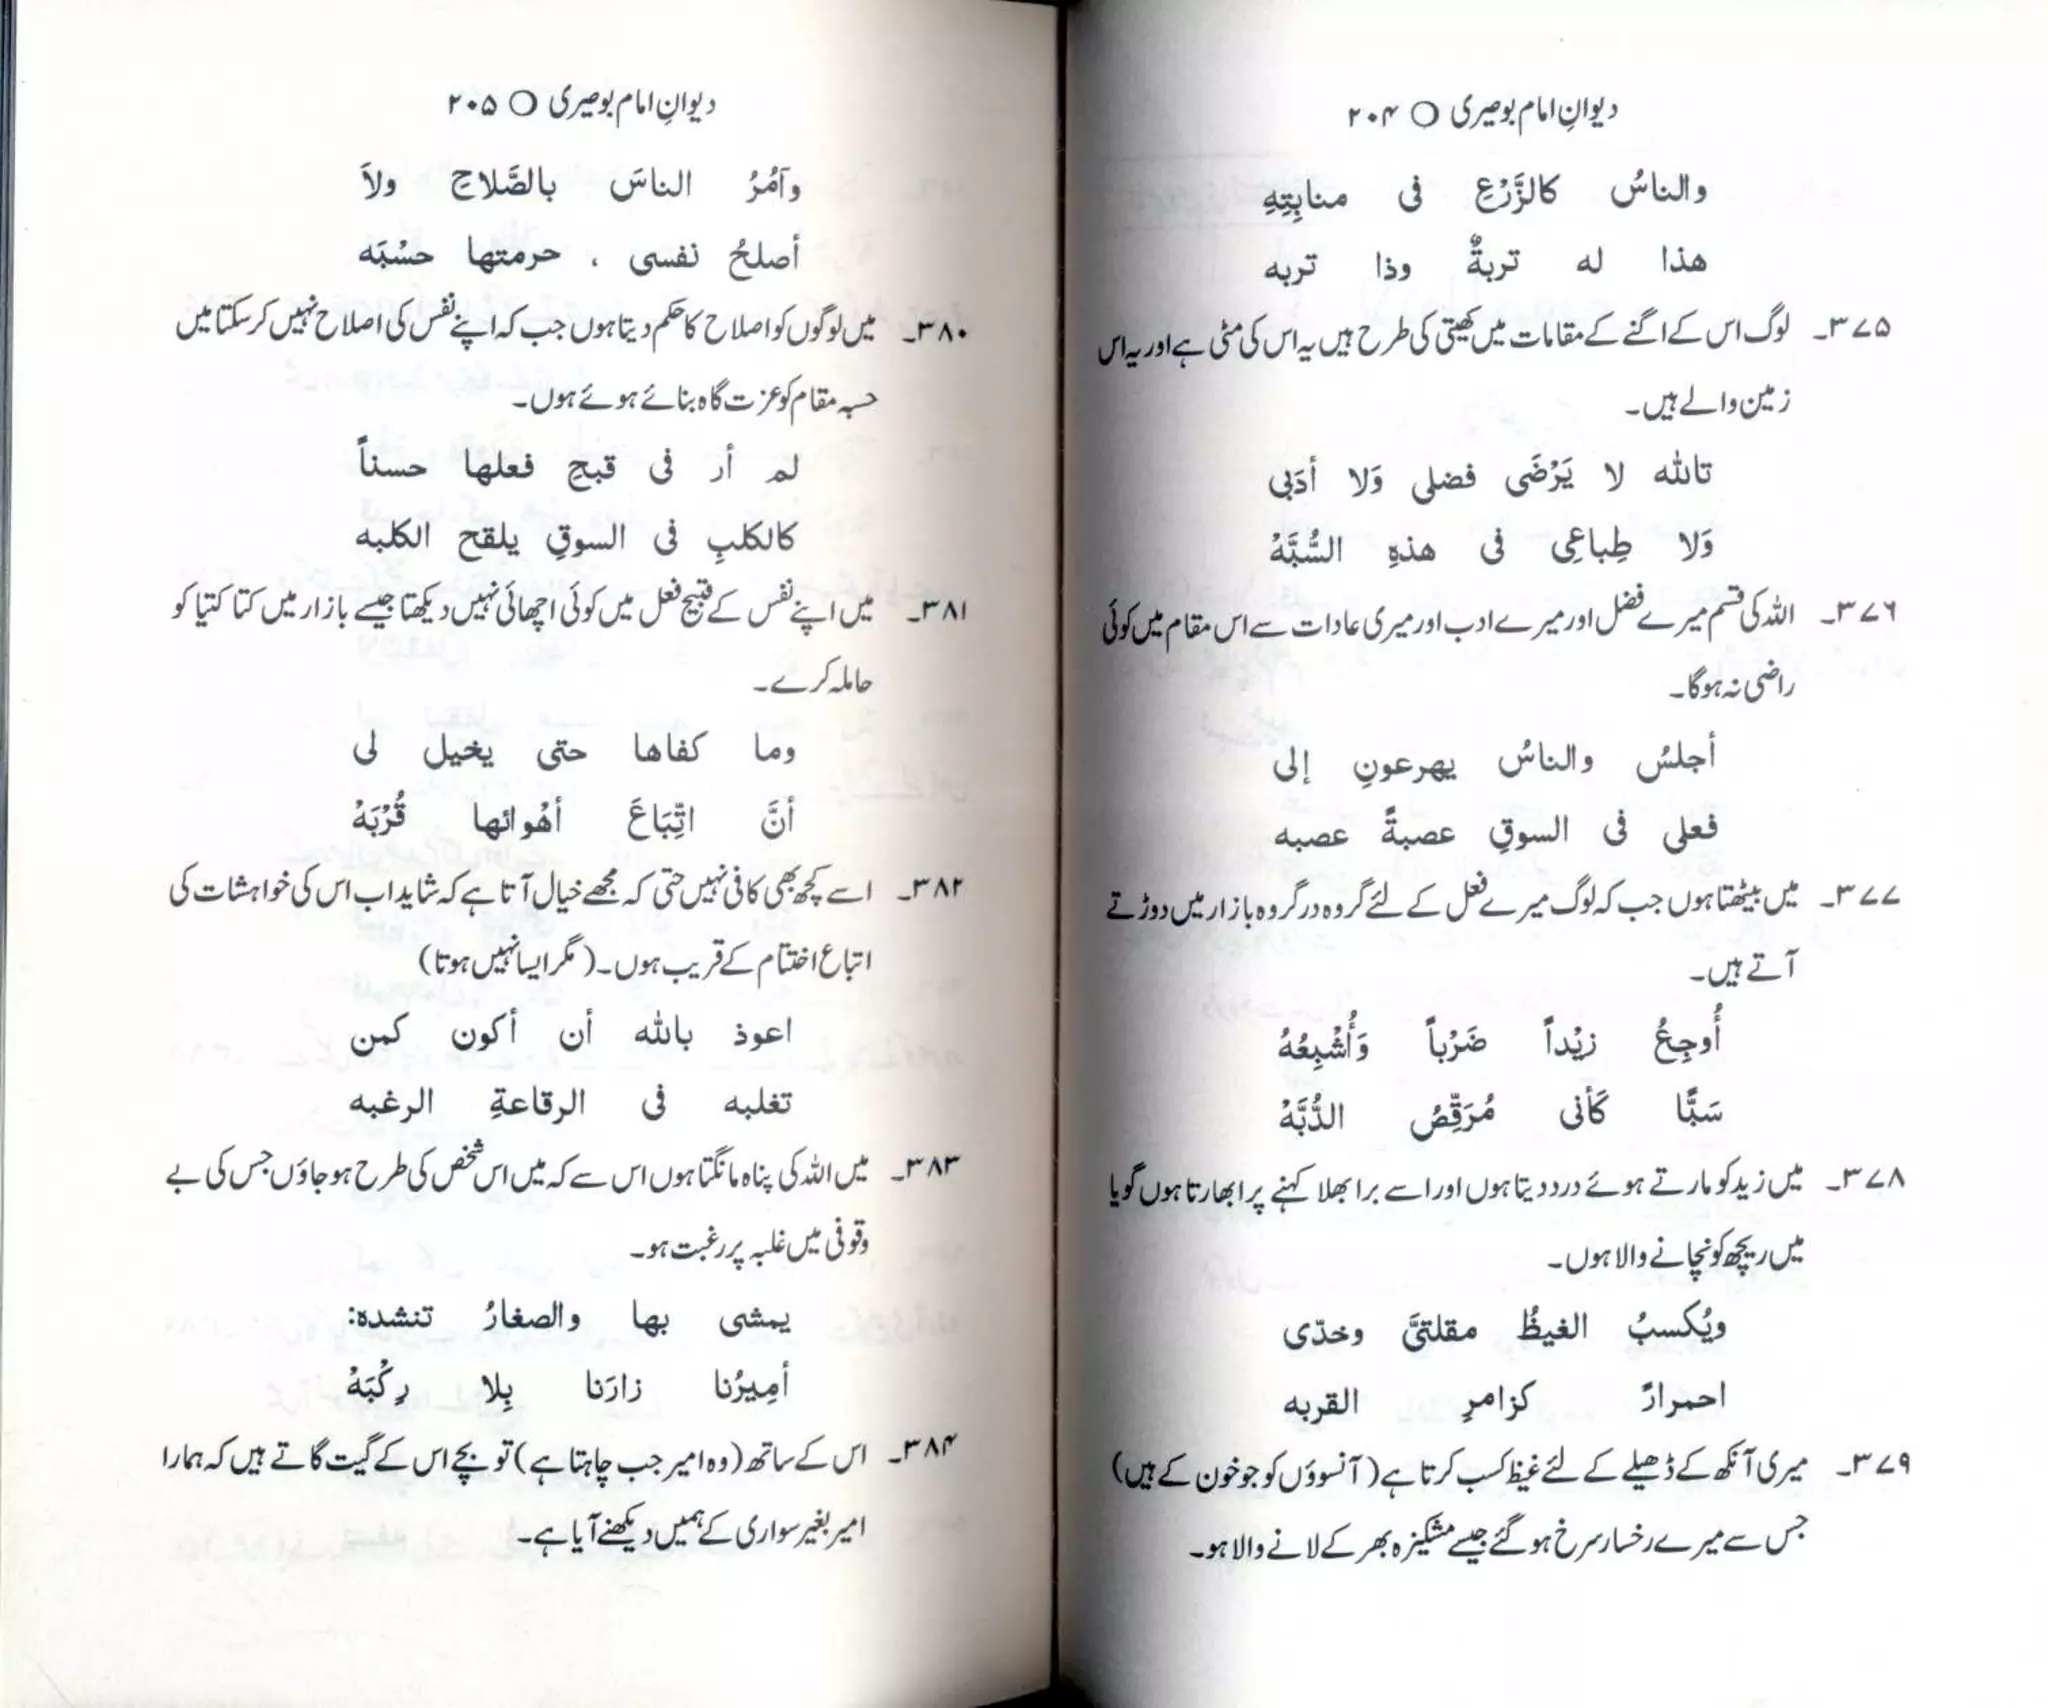 دیوانِ امام بوصیری ○ ۲۰۴
والناسُ كالزَّرْعِ فی منابِتِهِ
هذا له تربةٌ وذا تربه
۳۷۵۔ لوگ اس کے اگنے کے مقامات میں کھیتی کی طرح ہیں یہ اس کی مٹی ہے اور یہ اس
زمین والے ہیں۔
تالله لا یَرْضَی فضلی وَلا أدَبی
وَلا طِباعِی فی هذهِ السُّبَّهْ
۳۷۶۔ اللہ کی قسم میرے فضل اور میرے ادب اور میری عادات سے اس مقام میں کوئی
راضی نہ ہوگا۔
أجلسُ والناسُ یهرعونِ إلی
فعلی فی السوقِ عصبةً عصبه
۳۷۷۔ میں بیٹھتا ہوں جب کہ لوگ میرے فعل کے لئے گروہ در گروہ بازار میں دوڑتے
آتے ہیں۔
أُوجِعُ زیْداً ضَرْباً وَأُشْبِعُهُ
سَبًّا كَأنی مُرَقِّصُ الدُّبَّهْ
۳۷۸۔ میں زید کو مارتے ہوئے درد دیتا ہوں اور اسے برا بھلا کہنے پر ابھارتا ہوں گویا
میں ریچھ کو نچانے والا ہوں۔
ویُكسبُ الغیظُ مقلتیَّ وخدّی
احمرارً كزامرٍ القربه
۳۷۹۔ میری آنکھ کے ڈھیلے کے لئے غیظ کسب کرتا ہے (آنسوؤں کو جو خون کے ہیں)
جس سے میرے رخسار سرخ ہو گئے جیسے مشکیزہ بھر کے لانے والا ہو۔
دیوانِ امام بوصیری ○ ۲۰۵
وآمُرُ الناسَ بالصَّلاحِ ولاَ
أصلحُ نفسی ، حرمتها حسْبَه
۳۸۰۔ میں لوگوں کو اصلاح کا حکم دیتا ہوں جب کہ اپنے نفس کی اصلاح نہیں کر سکتا میں
حسبہ مقام کو عزت گاہ بنائے ہوئے ہوں۔
لم أر فی قبحِ فعلها حسناً
كالكلبِ فی السوقِ یلقح الكلبه
۳۸۱۔ میں اپنے نفس کے قبیح فعل میں کوئی اچھائی نہیں دیکھتا جیسے بازار میں کتا کتیا کو
حاملہ کرے۔
وما كفاها حتی یخیل لی
أنَّ اتِّبَاعَ أهْوائها قُرْبَهْ
۳۸۲۔ اسے کچھ بھی کافی نہیں حتی کہ مجھے خیال آتا ہے کہ شاید اب اس کی خواہشات کی
اتباع اختتام کے قریب ہوں۔ (مگر ایسا نہیں ہوتا)
اعوذ بالله أن أكون كمن
تغلبه فی الرقاعةِ الرغبه
۳۸۳۔ میں اللہ کی پناہ مانگتا ہوں اس سے کہ میں اس شخص کی طرح ہو جاؤں جس کی بے
وقوفی میں غلبہ پر رغبت ہو۔
یمشی بها والصغارُ تنشده:
أمِیرُنا زارَنا بِلا رِكْبَهْ
۳۸۴۔ اس کے ساتھ (وہ امیر جب چاہتا ہے) تو بچے اس کے گیت گاتے ہیں کہ ہمارا
امیر بغیر سواری کے ہمیں دیکھنے آیا ہے۔